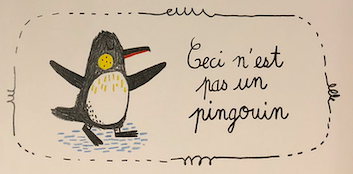 Ceci n'est
pas un
pingouin